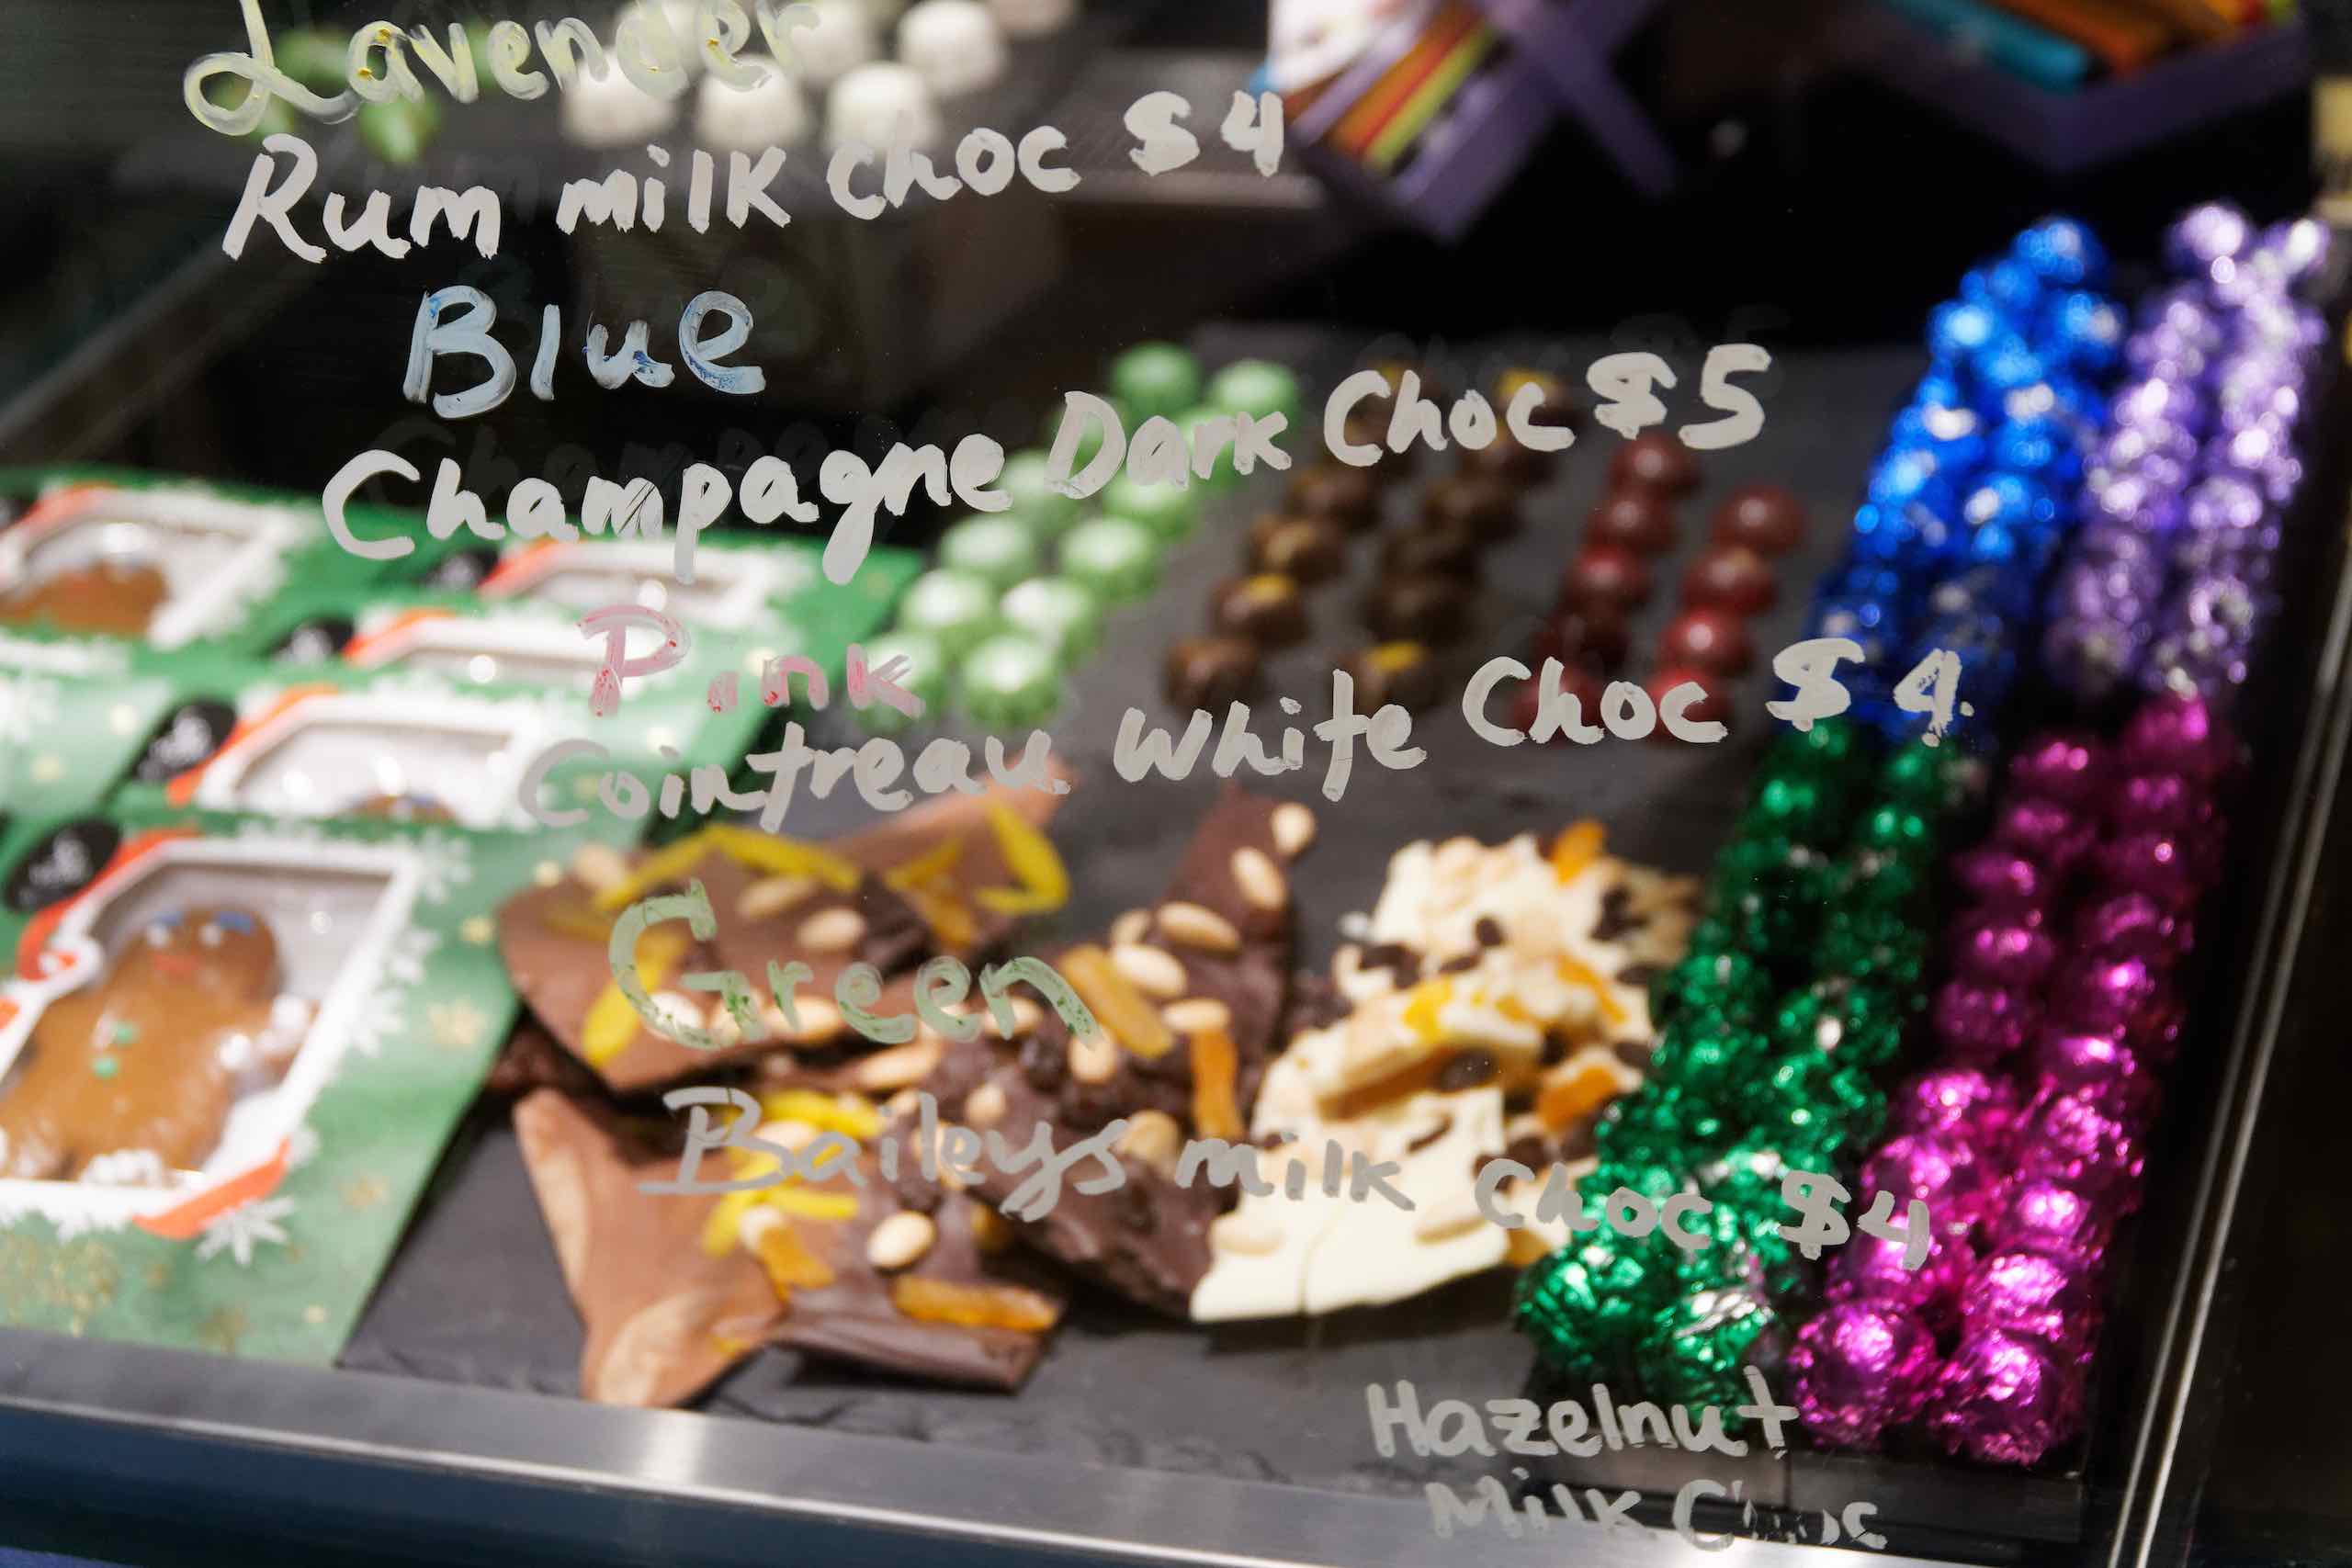 Lavender
Rum milk Choc $4
Blue
Champagne Dark Choc $5
Pink
Cointreau White Choc $4.
Green
Baileys milk Choc $4
Hazelnut
Milk Choc